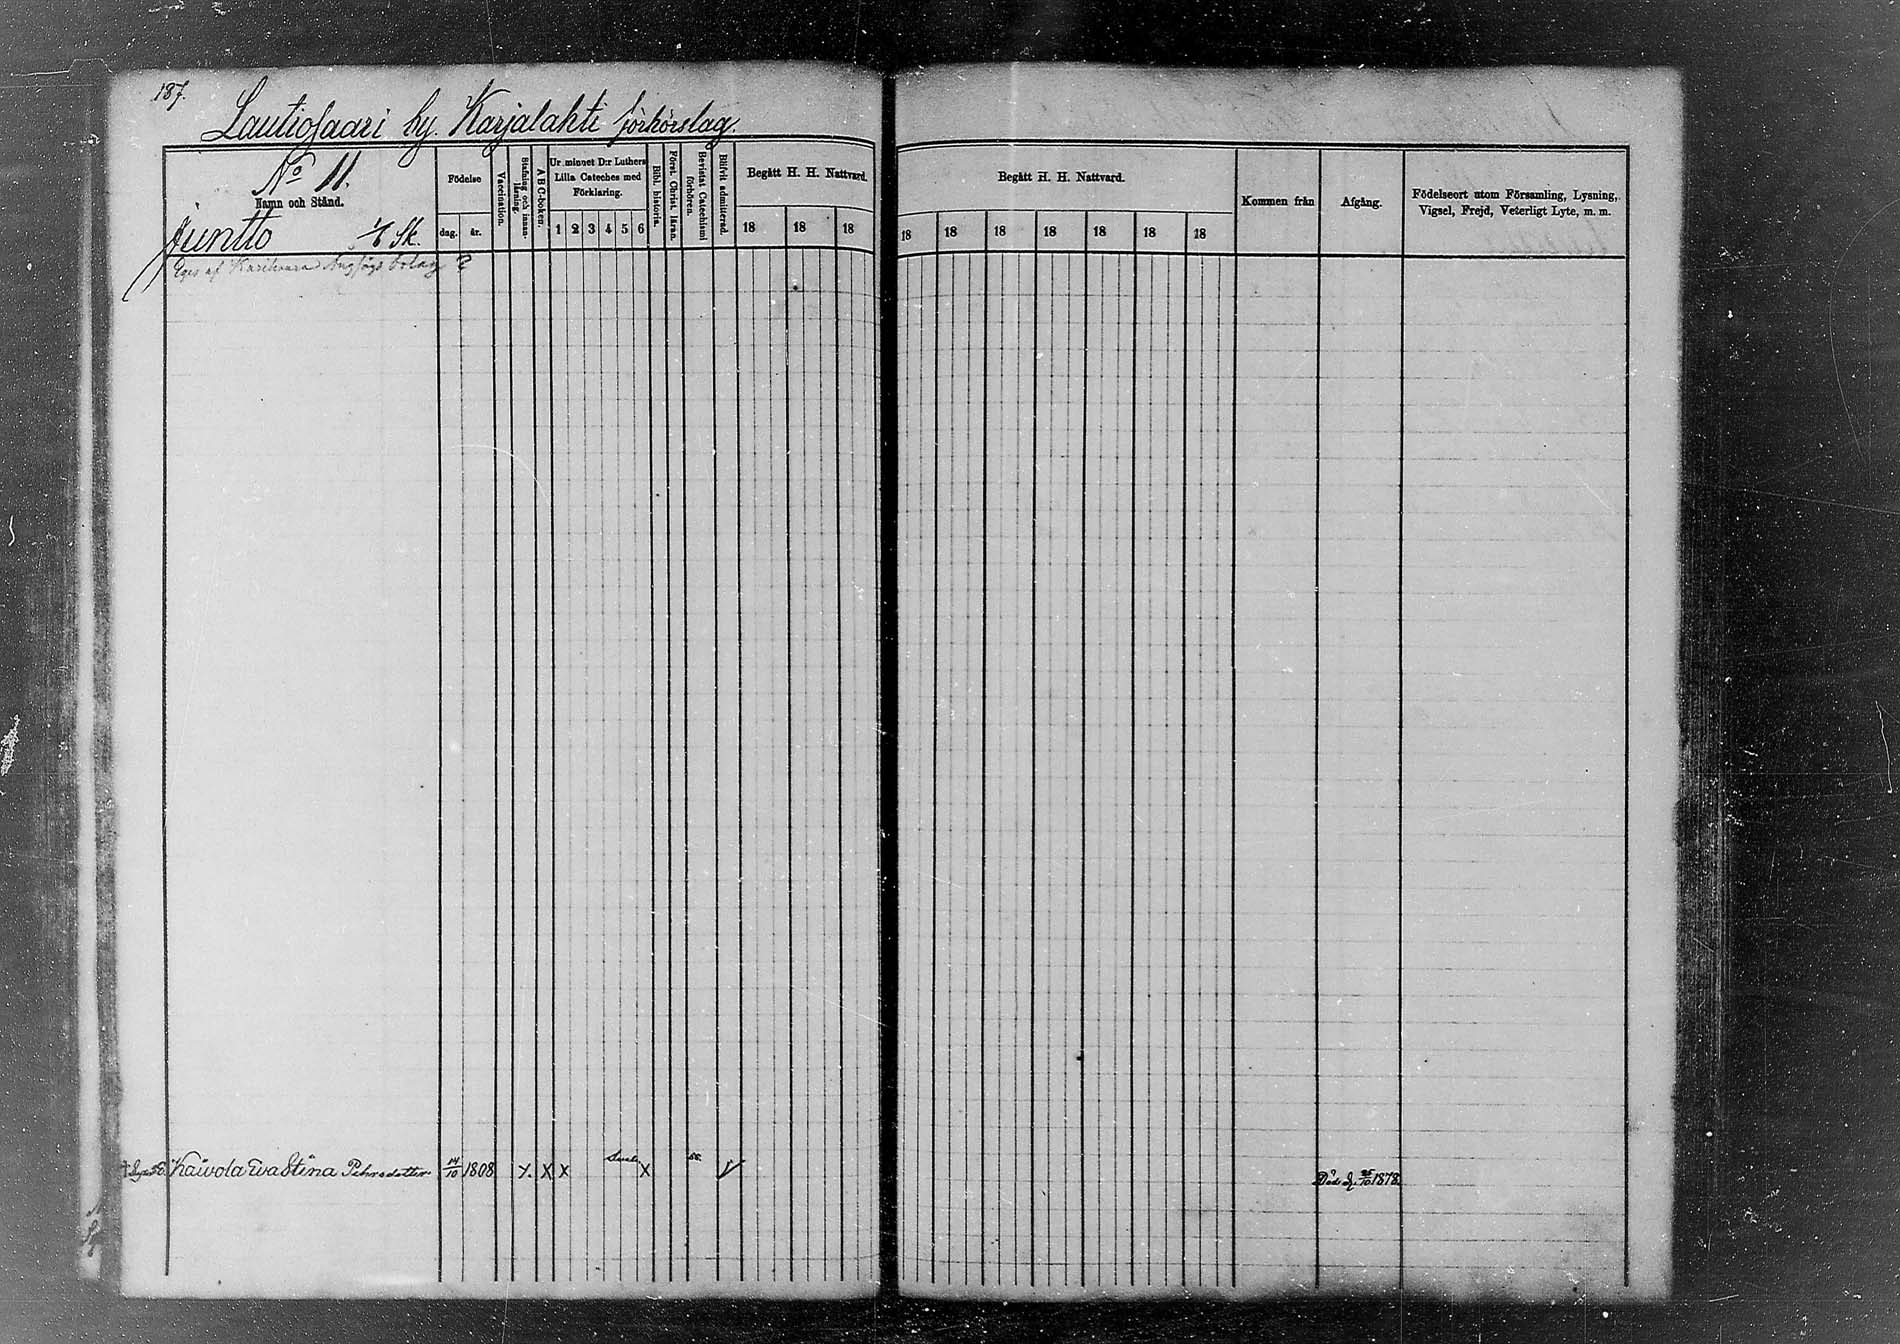 187.
Lautiosaari by. Karjalahti förhörslag.
No 11.
Namn och Stånd.
Juntto 1/6 Sk.
Födelse
dag. år.
Vaccination.
Stafning och innanläsning.
A B C-boken.
Ur minnet D:r Luthers Lilla Cateches med Förklaring.
1 2 3 4 5 6
Bibl. historia.
Först. Christ. läran.
Bevistat Catechismi förhören.
Blifvit admitterad.
Begått H. H. Nattvard.
18 18 18
Begått H. H. Nattvard.
18 18 18 18 18 18 18
Kommen från
Afgång.
Födelseort utom Församling, Lysning, Vigsel, Frejd, Veterligt Lyte, m. m.
Eges af bolag
Kaivola Eva Stina Pehrsdotter 14/10 1808 X X X X
Död d. 25/10 1878.